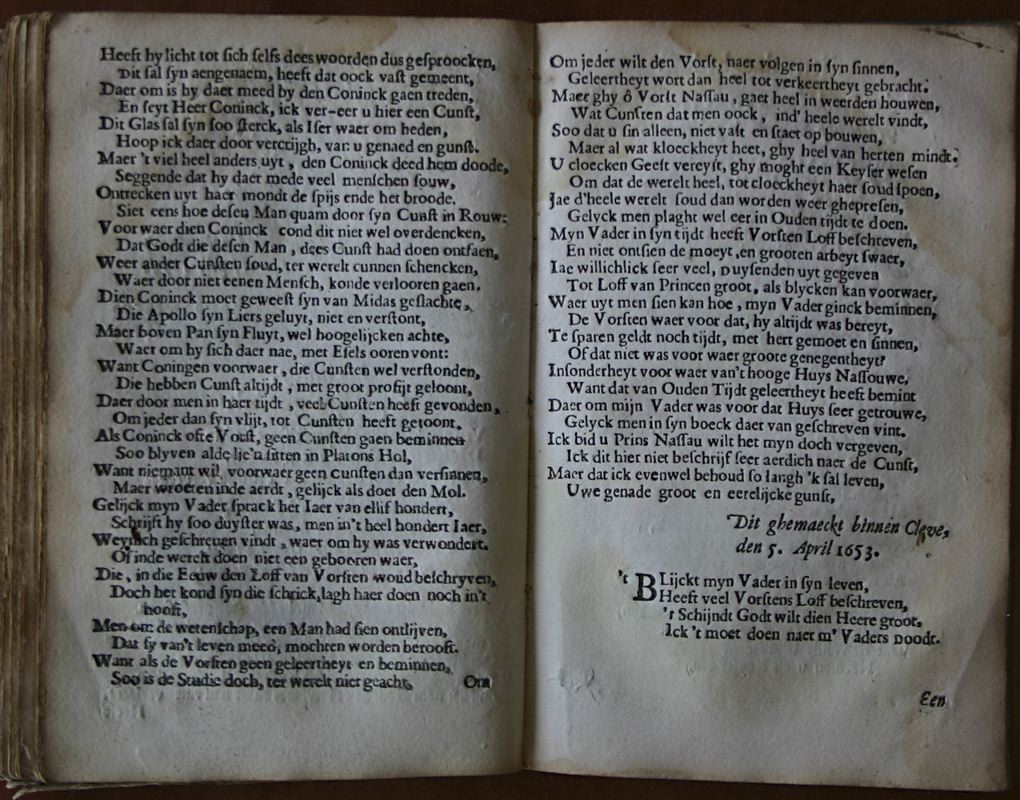 Heeft hy licht tot sich selfs dees woorden dus gesproocken,
Dit sal syn aengenaem, heeft dat oock vast gemeent,
Daer om is hy daer meed by den Coninck gaen treden,
En seyt Heer Coninck, ick ver-eer u hier een Cunst,
Dit Glas sal syn soo sterck, als Iser waer om heden,
Hoop ick daer door vercrijgh, van u genaed en gunst.
Maer 't viel heel anders uyt, den Coninck deed hem doode,
Seggende dat hy daer mede veel menschen souw,
Ontrecken uyt haer mondt de spijs ende het broode.
Siet eens hoe desen Man quam door syn Cunst in Rouw:
Voorwaer dien Coninck cond dit niet wel overdencken,
Dat Godt die desen Man, dees Cunst had doen ontfaen,
Weer ander Cunsten soud, ter werelt cunnen schencken,
Waer door niet eenen Mensch, konde verlooren gaen.
Dien Coninck moet geweest syn van Midas geslachte,
Die Apollo syn Liers geluyt, niet en verstont,
Maer boven Pan syn Fluyt, wel hoogelijcken achte,
Waer om hy sich daer nae, met Esels ooren vont:
Want Coningen voorwaer, die Cunsten wel verstonden,
Die hebben Cunst altijdt, met groot profijt geloont,
Daer door men in haer tijdt, veel Cunsten heeft gevonden,
Om jeder dan syn vlijt, tot Cunsten heeft getoont.
Als Coninck ofte Vorst, geen Cunsten gaen beminnen
Soo blyven alde sitten in Platons Hol,
Want niemant wil voorwaer geen cunsten dan versinnen,
Maer wroeten inde aerdt, gelijck als doet den Mol.
Gelijck myn Vader sprack het Iaer van ellif hondert,
Schrijft hy soo duyster was, men in't heel hondert Iaer,
Weynich geschreuen vindt, waer om hy was verwondert.
Of inde werelt doen niet een gebooren waer,
Die, in die Eeuw den Loff van Vorsten woud beschryven,
Doch het kond syn die schrick, lagh haer doen noch in't
hooft,
Men om de wetenschap, een Man had sien ontlijven,
Dat sy van't leven meed, mochten worden berooft.
Want als de Vorsten geen geleertheyt en beminnen,
Soo is de Studie doch, ter werelt niet geacht,
Om
Om jeder wilt den Vorst, naer volgen in syn sinnen,
Geleertheyt wort dan heel tot verkeertheyt gebracht:
Maer ghy ô Vorst Nassau, gaet heel in weerden houwen,
Wat Cunsten dat men oock, ind' heele werelt vindt,
Soo dat u sin alleen, niet vast en staet op bouwen,
Maer al wat kloeckheyt heet, ghy heel van herten mindt:
U cloecken Geest vereyst, ghy moght een Keyser wesen
Om dat de werelt heel, tot cloeckheyt haer soud spoen,
Jae d'heele werelt soud dan worden weer ghepresen,
Gelyck men plaght wel eer in Ouden tijdt te doen.
Myn Vader in syn tijdt heeft Vorsten Loff beschreven,
En niet ontsien de moeyt, en grooten arbeyt swaer,
Iae willichlick seer veel, Duysenden uyt gegeven
Tot Loff van Princen groot, als blycken kan voorwaer,
Waer uyt men sien kan hoe, myn Vader ginck beminnen,
De Vorsten waer voor dat, hy altijdt was bereyt,
Te sparen geldt noch tijdt, met hert gemoet en sinnen,
Of dat niet was voor waer groote genegentheyt?
Insonderheyt voor waer van't hooge Huys Nassouwe,
Want dat van Ouden Tijdt geleertheyt heeft bemint
Daer om mijn Vader was voor dat Huys seer getrouwe,
Gelyck men in syn boeck daer van geschreven vint.
Ick bid u Prins Nassau wilt het myn doch vergeven,
Ick dit hier niet beschrijf seer aerdich naer de Cunst,
Maer dat ick evenwel behoud so langh 'k sal leven,
Uwe genade groot en eerelijcke gunst,
Dit ghemaeckt binnen Cleve,
den 5. April 1653.
't Blijckt myn Vader in syn leven,
Heeft veel Vorstens Loff beschreven,
't Schijndt Godt wilt dien Heere groot,
Ick 't moet doen naer m' Vaders Doodt.
Een